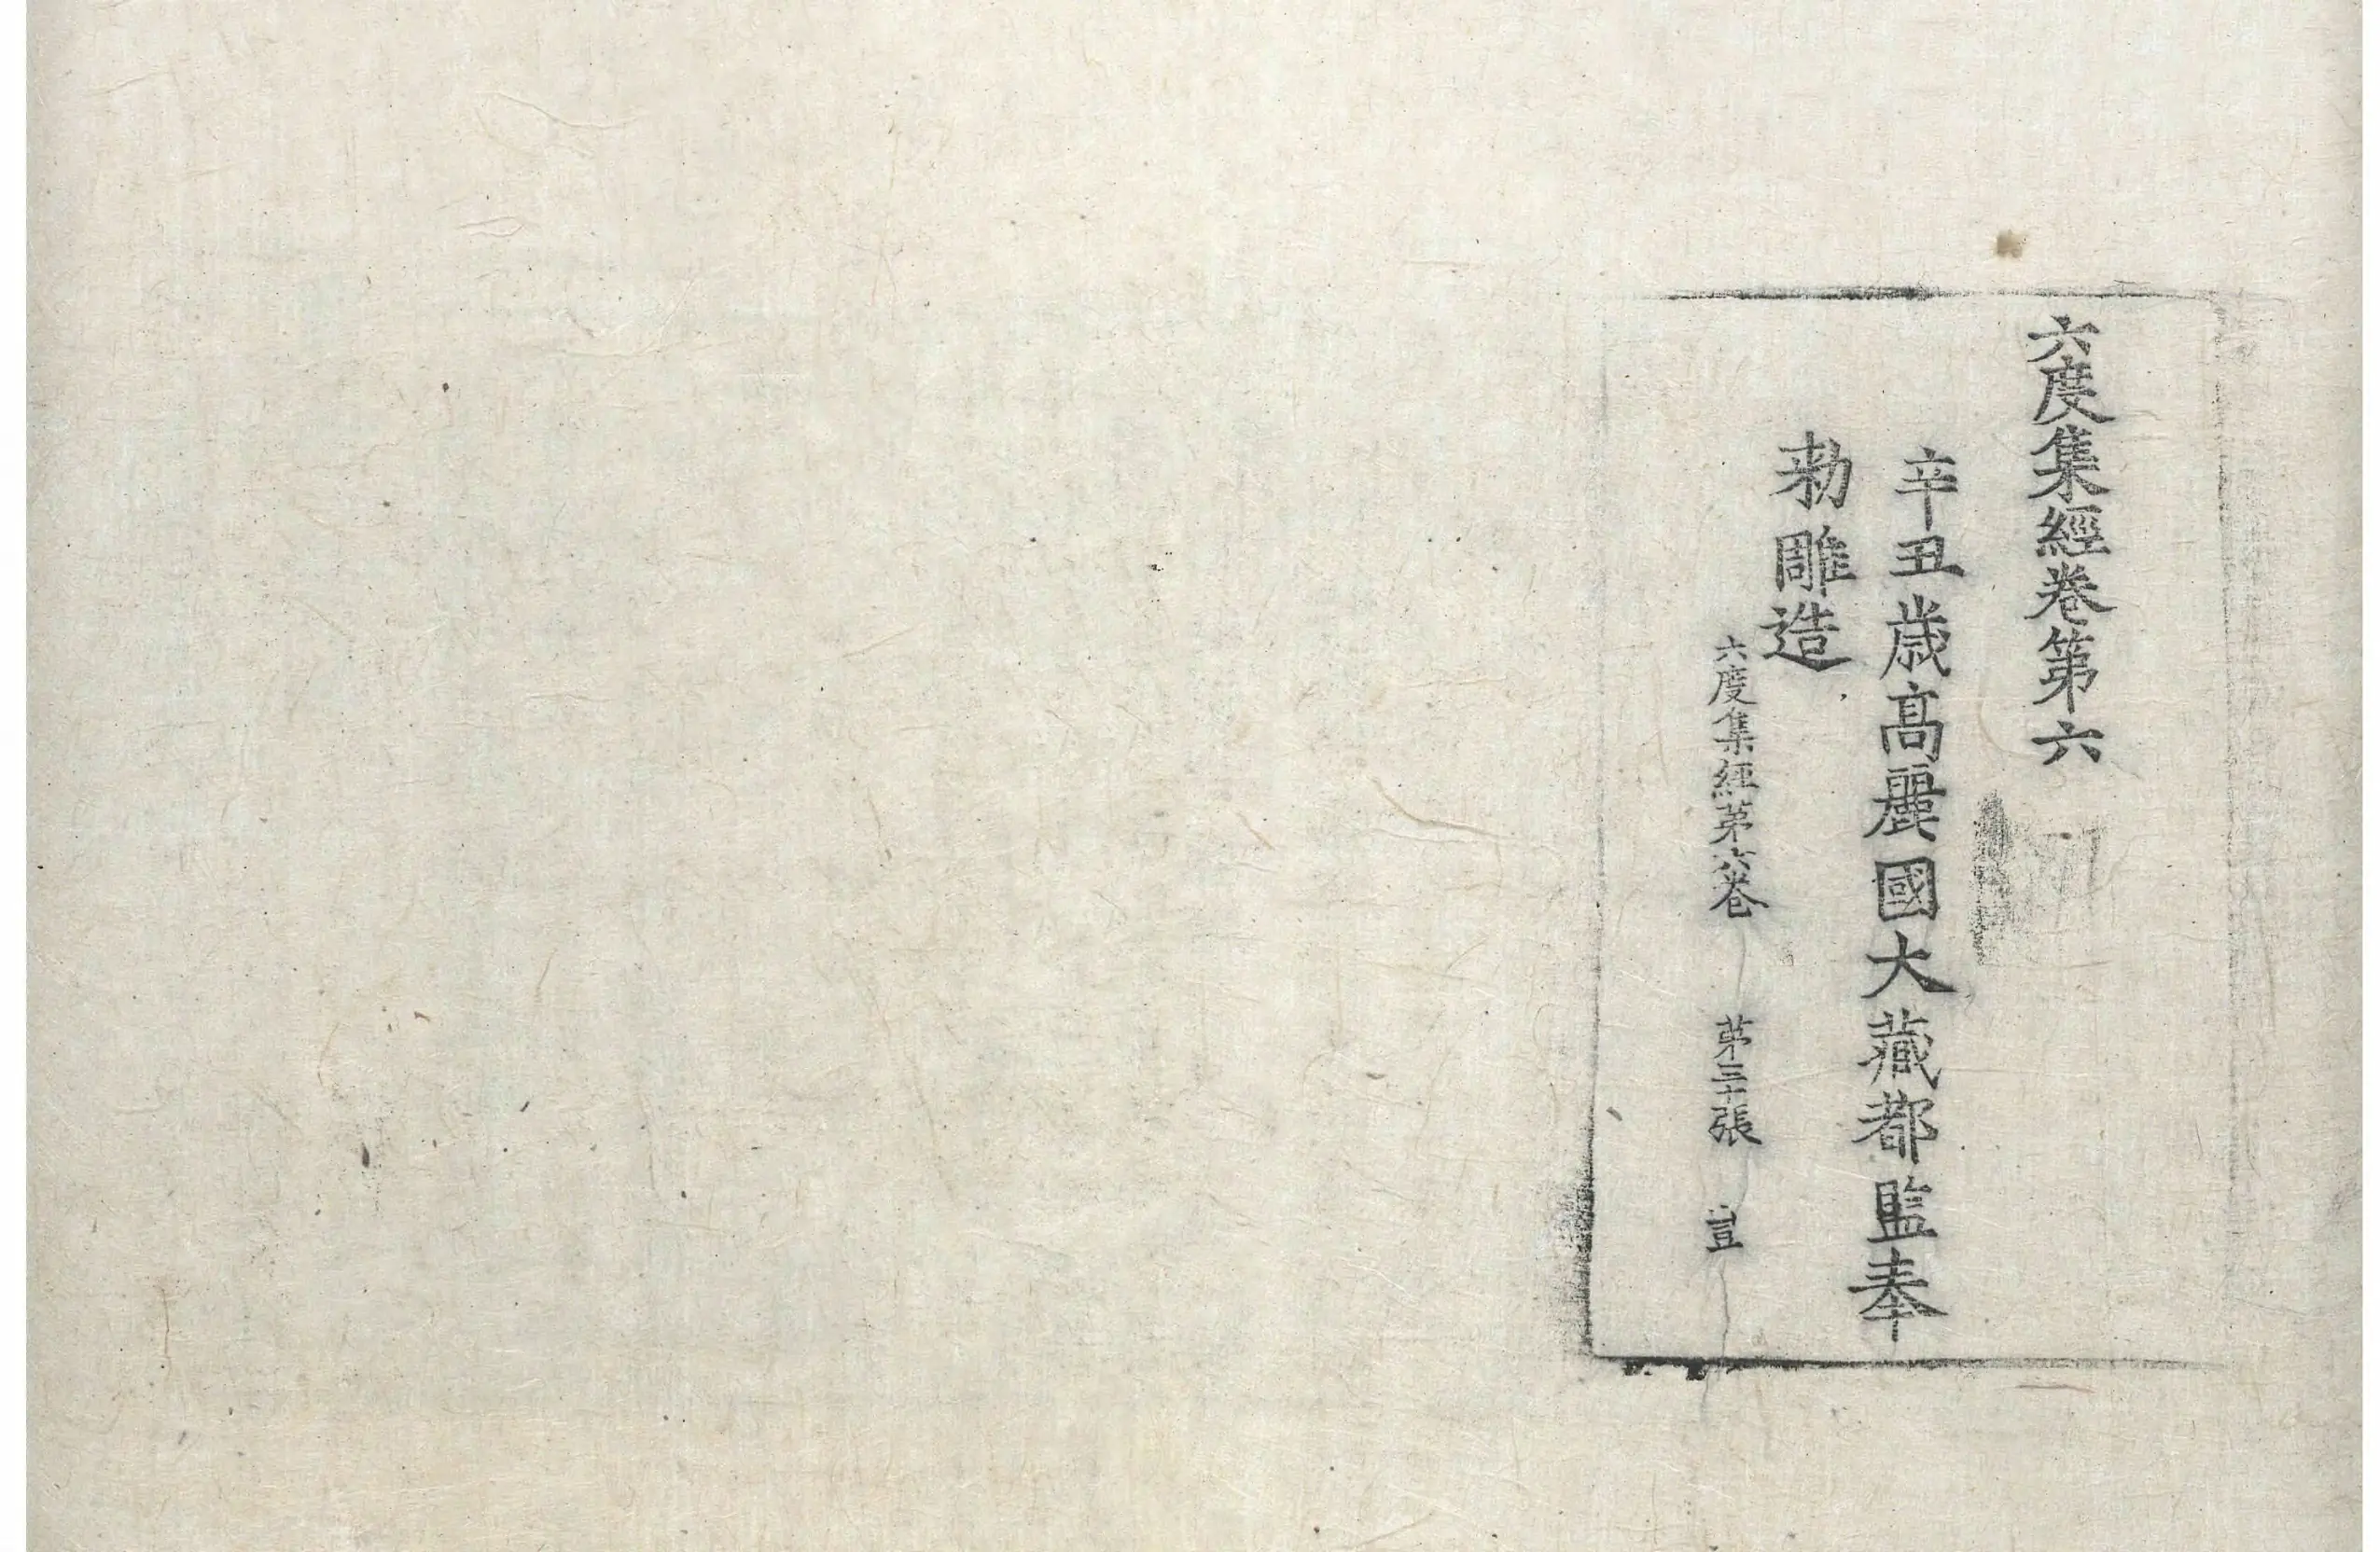 六度集經卷第六
辛丑歲高麗國大藏都監奉
勑雕造
六度集經第六卷 第三十張 豈